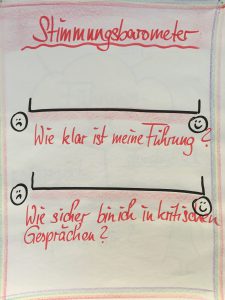 Stimmungsbarometer
Wie klar ist meine Führung?
Wie sicher bin ich in kritischen
Gesprächen?